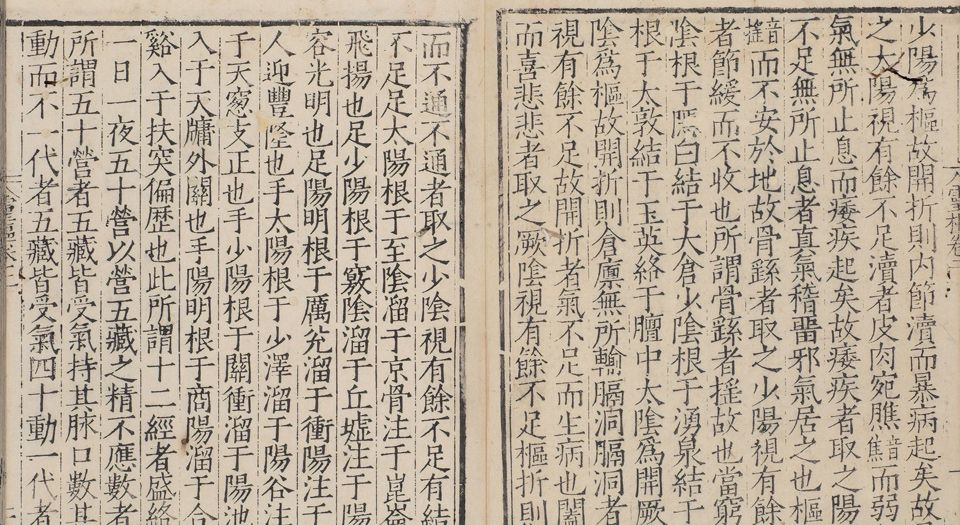 少陽爲樞故開折則内節瀆而暴病起矣故
之太陽視有餘不足瀆者皮肉宛膲音焦而弱
氣無所止息而痿疾起矣故痿疾者取之陽
不足無所止息者真氣稽畱邪氣居之也樞
音搖而不安於地故骨繇者取之少陽視有餘
者節緩而不收也所謂骨繇者摇故也當窮
陰根于隱白結于太倉少陰根于湧泉結于
根于太敦結于玉英絡于膻中太陰爲開厥
陰爲樞故開折則倉廪無所輸膈洞膈洞者
視有餘不足故開折者氣不足而生病也闔
而喜悲悲者取之厥陰視有餘不足樞折則
而不通不通者取之少陰視有餘不足有結
不足足太陽根于至陰溜于京骨注于崑崙
飛揚也足少陽根于竅陰溜于丘墟注于
容光明也足陽明根于厲兊溜于衝陽注于
人迎豐隆也手太陽根于少澤溜于陽谷注
于天窻支正也手少陽根于關衝溜于陽池
入于天牖外關也手陽明根于商陽溜于合
谿入于扶突偏歴也此所謂十二經者盛絡
一日一夜五十營以營五藏之精不應數者
所謂五十營者五藏皆受氣持其脉口數其
動而不一代者五藏皆受氣四十動一代者